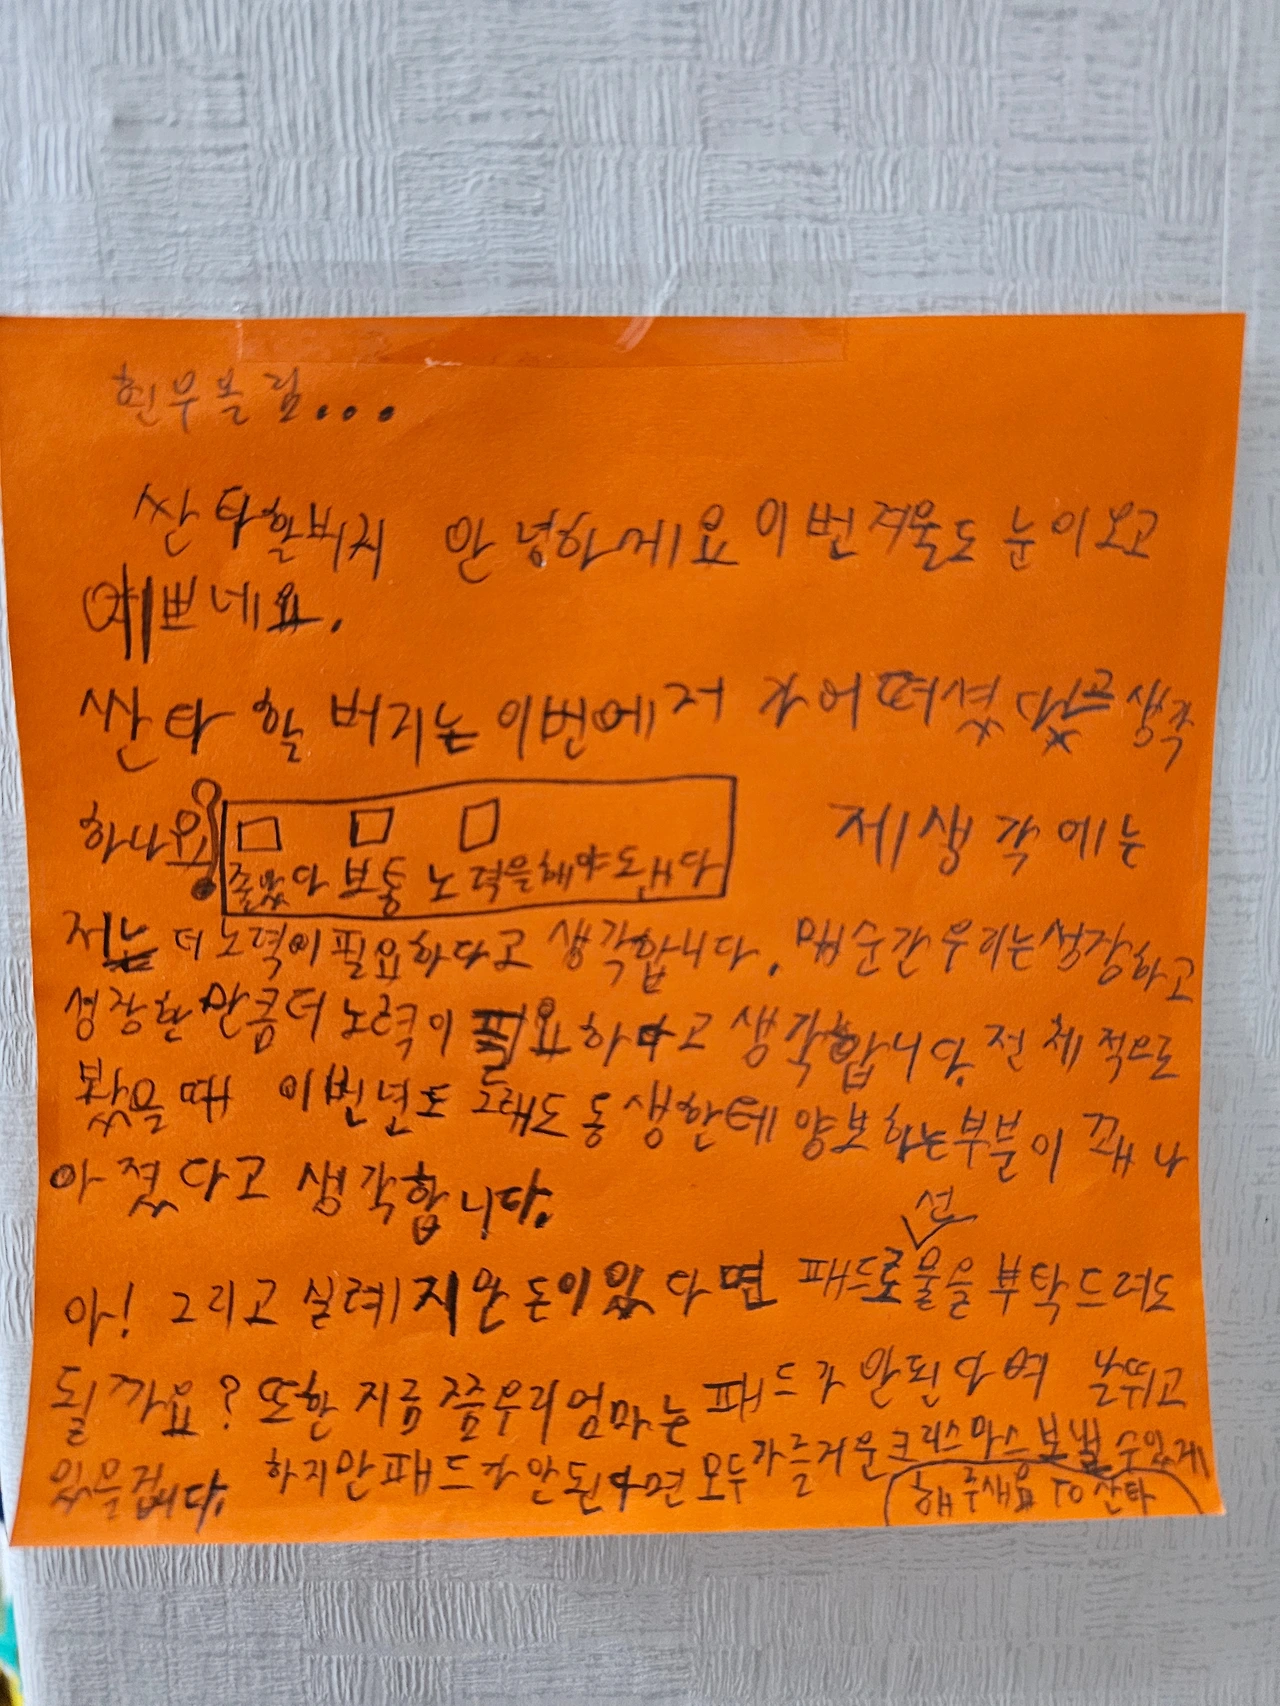 현우올림...
싼타할버지 안녕하세요 이번겨울도 눈이오고
예쁘네요.
싼타 할버지는 이번에 저 가 어떠셨다고 생각
하나요?
□ □ □
좋았다 보통 노력을해야됀다
제생각에는
저는 더 노력이 필요하다고 생각합니다. 매순간 우리는 성장하고
성장한 만큼 더 노력이 필요하다고 생각합니다. 전체적으로
봤을때 이번년도 그래도 동생한테 양보하는부분이 꽤 나
아졌다고 생각합니다.
아! 그리고 실례지만 돈이있다면 패드로선물을 부탁드려도
될까요? 또한 지금쯤우리엄마는 패드가 안된다며 날뛰고
있을겁니다. 하지만패드가안된다면 모두가즐거운크리스마스보낼수있게
해주새요 TO 산타